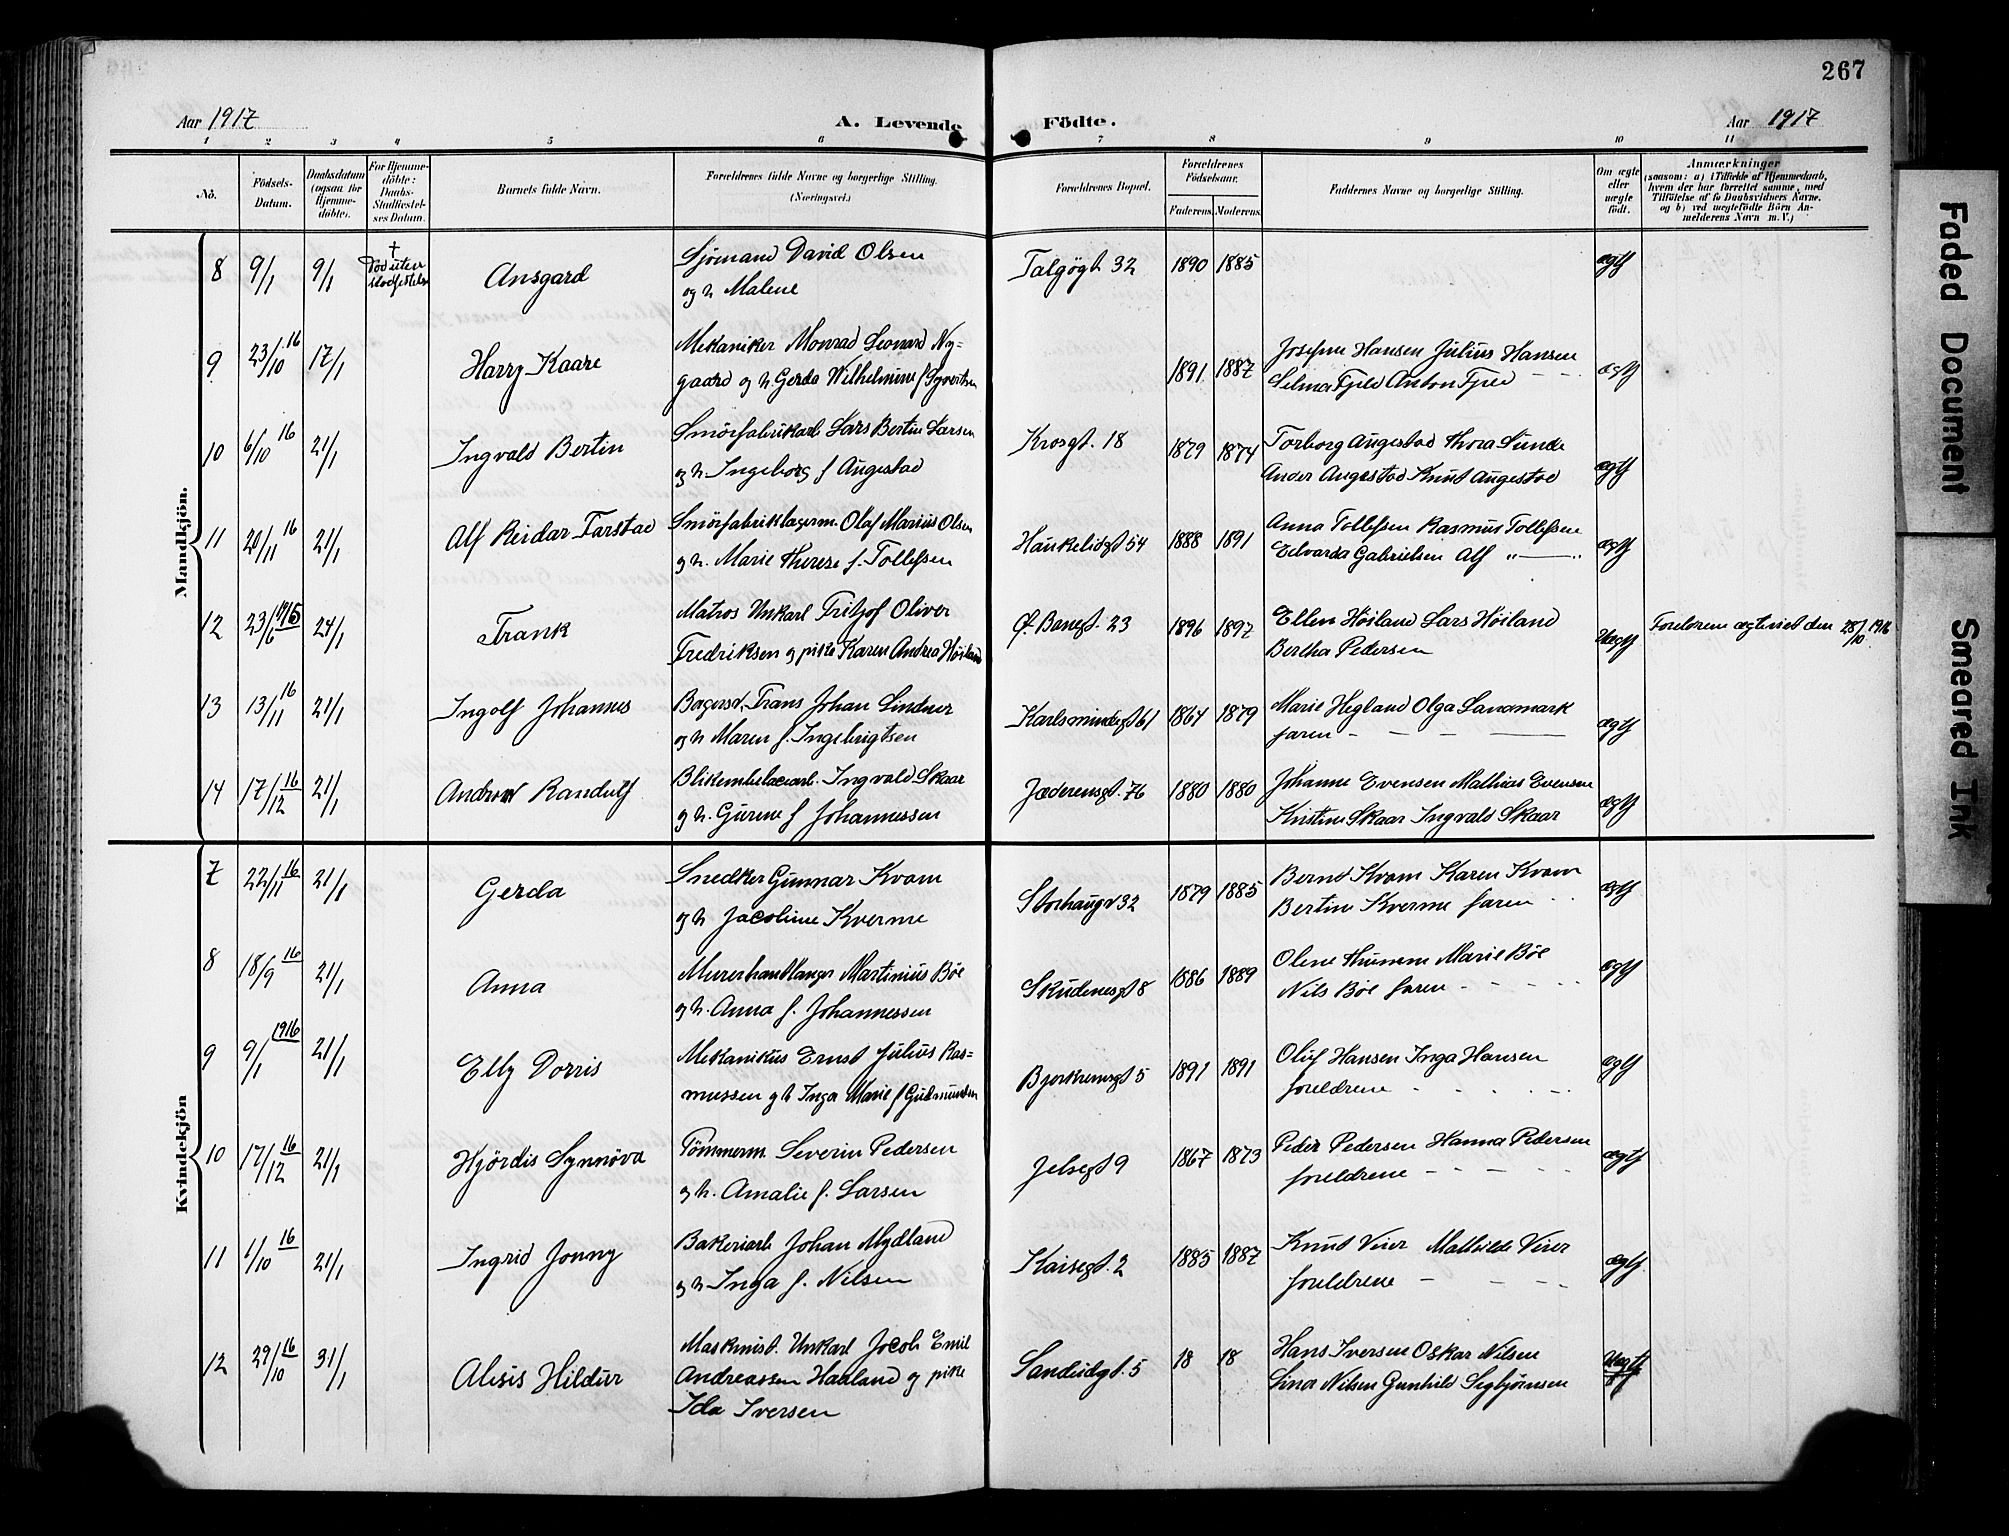 267
Aar 1917 A. Levende Födte. Aar 1917
1 2 3 4 5 6 7 8 9 10 11
No. Födsels-Datum. Daabsdatum (ogsaa for Hjemmedöbte). For Hjemmedöbte: Daabs-Stadfæstelses Datum. Barnets fulde Navn. Forældrenes fulde Navne og borgerlige Stilling. (Næringsvei.) Forældrenes Bopæl. Forældrenes Födselsaar. Faderens Moderens Faddernes Navne og borgerlige Stilling. Om ægte eller uægte födt. Anmærkninger (saasom: a) i Tilfælde af Hjemmedaab, hvem der har forrettet samme, med Tilföielse af to Daabsvidners Navne, og b) ved uægtefödte Börn Anmelderens Navn m. V.)
Mandkjön.
8 9/1 9/1 † Död uten stadfestelse Ansgard Sjömand David Olsen
og h Malene Talgögt 32 1890 1885 ægte
9 23/10 16 17/1 Harry Kaare Mekaniker Monrad Leonard Ny-
gaard og h. Gerda Wilhelmine f Syvertsen 1891 1887 Josefine Hansen Julius Hansen
Selma Fjeld Anton Fjeld ægte
10 6/10 16 21/1 Ingvald Bertin Smörfabrikarb Lars Bertin Larsen
og h. Ingeborg f Augestad Krosgt. 18 1879 1874 Torborg Augestad Thora Sunde
Ander Augestad Knut Augestad ægte
11 20/11 16 21/1 Alf Reidar Farstad Smörfabriklagerm. Olaf Marius Olsen
og h. Marie Therese f. Tollefsen Haukelidgt 54 1888 1891 Anna Tollefsen Rasmus Tollefsen
Edvarda Gabrielsen Alf " — " ægte
12 23/6 1915 24/1 Frank Matros Unkarl Fritjof Oliver
Fredriksen og pike Karen Andrea Höiland Ø. Banegt. 23 1896 1897 Ellen Höiland Lars Höiland
Bertha Pedersen Uægte Foreldrene ægteviet den 28/10 1916
13 13/11 16 21/1 Ingolf Johannes Bagersv. Frans Johan Lindner
og h Maren f. Ingebrigtsen Karlsmindegt 61 1864 1879 Marie Hegland Olga Landmark
faren - - - ægte
14 17/12 16 21/1 Andrew Randulf Blikemballagearb. Ingvald Skaar
og h. Gurine f Johannessen Jæderensgt. 76 1880 1880 Johanne Evensen Mathias Evensen
Kristine Skaar Ingvald Skaar ægte
Kvindekjön
7 22/11 16 21/1 Gerda Snedker Gunnar Kvam
og h Jacoline Kverme Storhaugv 32 1879 1885 Bernt Kvam Karen Kvam
Bertine Kverme faren ægte
8 18/9 16 21/1 Anna Murerhandlanger Martinius Böe
og h. Anna f. Johannessen Skudenesgt 8 1886 1889 Olene Marie Böe
Nils Böe faren - - - ægte
9 9/1 1916 21/1 Elly Dorris Mekanikus Ernst Julius Ras=
mussen og h Inga Marie f Gudmundsen Bjerkremsgt 5 1891 1891 Oluf Hansen Inga Hansen
foreldrene ægte
10 17/12 16 21/1 Hjördis Synnöva Tömmerm Severin Pedersen
og h. Amalie f. Larsen Jelsegt 9 1867 1873 Peder Pedersen Hanna Pedersen
foreldrene - - - ægte
11 1/10 16 21/1 Ingrid Jonny Bakeriarb Johan Mydland
og h Inga f. Nilsen Kaisegt. 2 1885 1887 Knut Veier Mathilde Veier
foreldrene - - - ægte
12 29/10 16 31/1 Alisis Hildur Maskinist. Unkarl Jocob Emil
Andreassen Haaland og pike
Ida Iversen Sandeidgt. 5 18 18 Hans Iversen Oskar Nilsen
Lina Nilsen Gunhild Sigbjörnsen Uægte
Faded Document
Smeared Ink